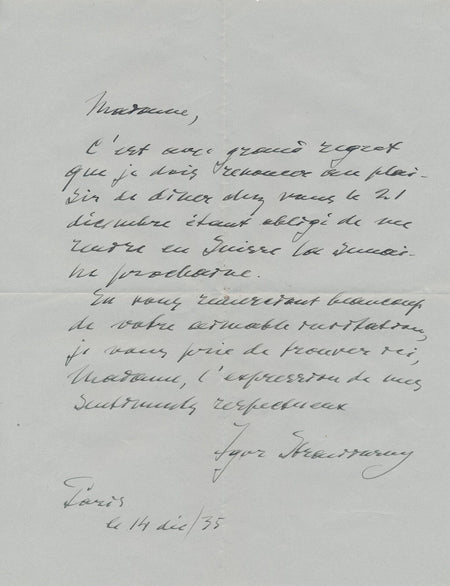 Madame,
C'est avec grand regret
que je dois renoncer au plai-
sir de dîner chez vous le 21
décembre étant obligé de me
rendre en Suisse la semai-
ne prochaine.
En vous remerciant beaucoup
de votre aimable invitation,
je vous prie de trouver ici,
Madame, l'expression de mes
sentiments respectueux
Igor Strawinsky
Paris
le 14 déc/35